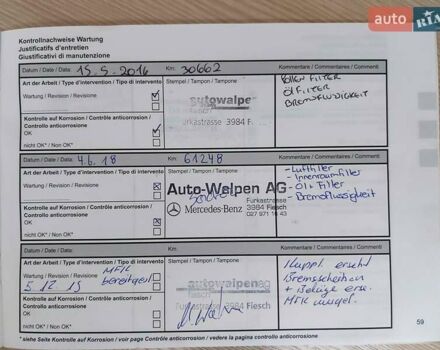 auto RIA
Kontrollnachweise Wartung
Justificatifs d'entretien
Giustificativi di manutenzione
Datum / Date / Data: 15.5.2016 Km: 30662 Kommentare / Commentaires / Commenti
Art der Arbeit / Type d'intervention / Tipo di intervento Stempel / Tampon / Tampone
Wartung / Revision / Revisione
POLLEN FILTER
ÖLFILTER
BREMSFLÜSSIGKEIT
autowalpen
Furkastrasse 3984 Fiesch
Kontrolle auf Korrosion / Contrôle anticorrosion /
Controllo anticorrosione
OK
nicht OK* / Non OK*
Datum / Date / Data: 4.6.18 Km: 61248 Kommentare / Commentaires / Commenti
Art der Arbeit / Type d'intervention / Tipo di intervento Stempel / Tampon / Tampone
Wartung / Revision / Revisione
- Luftfilter
- Innenraumfilter
- Öl + Filter
- Bremsflüssigkeit
Auto-Walpen AG
Mercedes-Benz
Furkastrasse
3984 Fiesch
027 971 16 43
Kontrolle auf Korrosion / Contrôle anticorrosion /
Controllo anticorrosione
OK
nicht OK* / Non OK*
Datum / Date / Data: Km: Kommentare / Commentaires / Commenti
Art der Arbeit / Type d'intervention / Tipo di intervento Stempel / Tampon / Tampone
Wartung / Revision / Revisione
MFK
bereitgest
5 12 19
autowalpen ag
Furkastrasse 3984 Fiesch
Kuppl. ersetzt
Bremsscheiben
+ Beläge erse.
MFK
Kontrolle auf Korrosion / Contrôle anticorrosion /
Controllo anticorrosione
OK
nicht OK* / Non OK*
*siehe Seite Kontrolle auf Korrosion / voir page Contrôle anticorrosion / vedere la pagina controllo anticorrosione
59